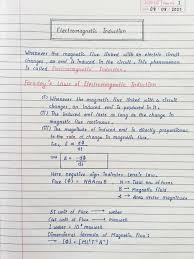 Electromagnetic Induction
Whenever the magnetic flux linked with an electric circuit
changes, an emf is induced in the circuit. This phenomenon
is called Electromagnetic Induction.
Faraday's Laws of Electromagnetic Induction
(I) Whenever the magnetic flux linked with a circuit
changes, an induced emf is produced in it.
(II) The induced emf lasts so long as the change in
magnetic flux continues.
(III) The magnitude of induced emf is directly proportional
to the rate of change in magnetic flux,
Here negative sign indicates Lenz's Law.
Flux (ϕ) = NBAcosθ
N → Total no. of turns
B → Magnetic field
A → Area
SI unit of Flux → weber
CGS unit of Flux → maxwell
1 weber = 10⁸ maxwell
Dimensional formula of Magnetic Flux